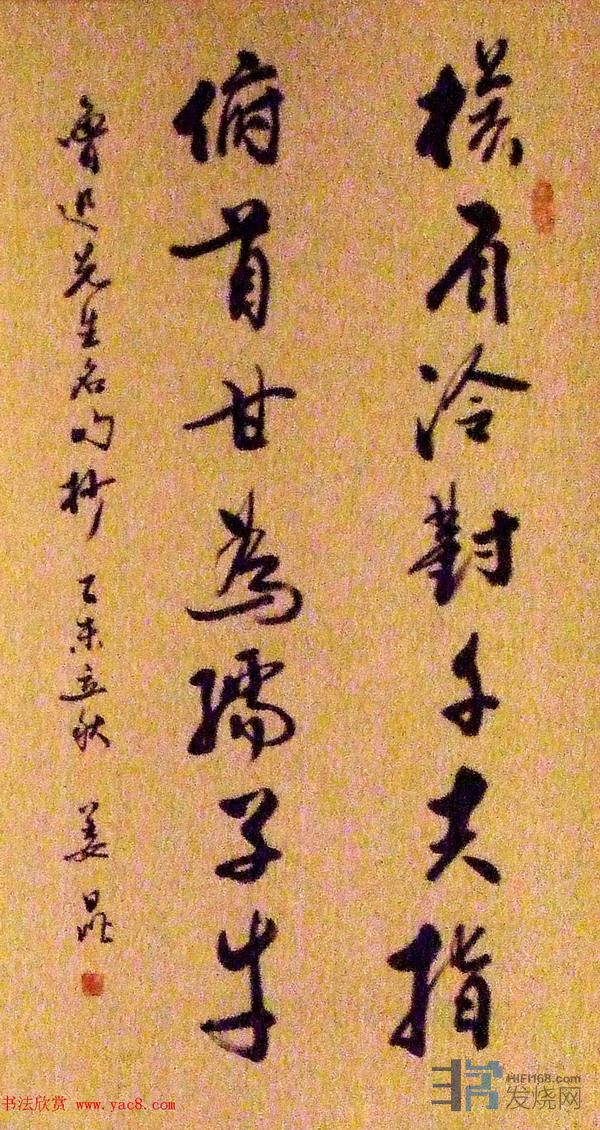 橫眉冷對千夫指
俯首甘為孺子牛
魯迅先生名句抄 乙未立秋 姜
书法欣赏 www.yac8.com
HIFI168.com
发烧网